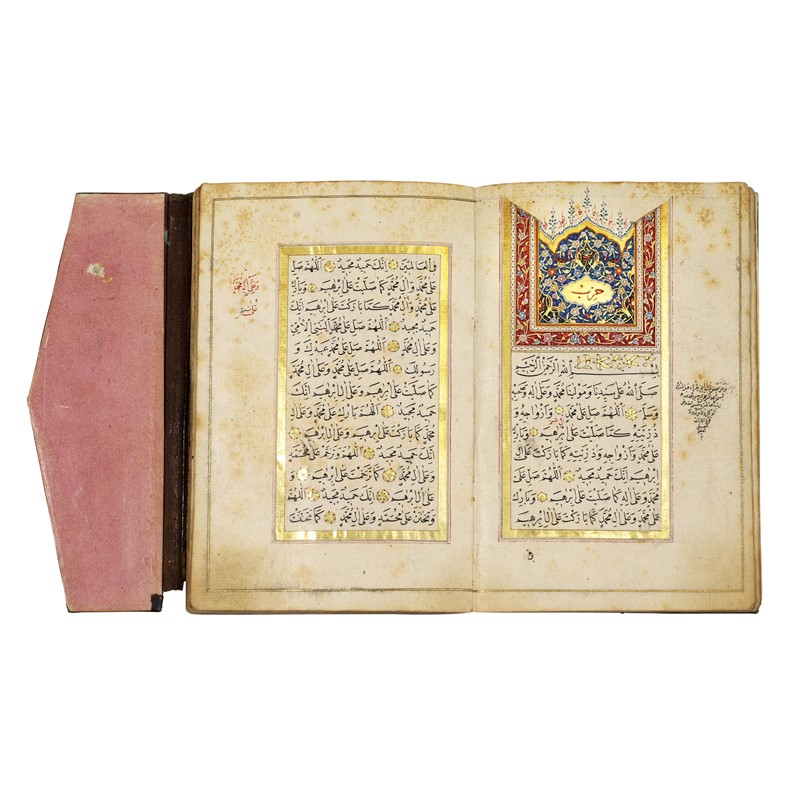 حزب
بسم الله الرحمن الرحيم
صَلَّى اللهُ عَلَى سَيِّدِنَا وَمَوْلٰينَا مُحَمَّدٍ وَعَلَى اٰلِهِ وَصَحْبِهِ
وَسَلَّمَ اَللّٰهُمَّ صَلِّ عَلَى مُحَمَّدٍ وَاَزْوَاجِهِ وَ
ذُرِّيَّتِهِ كَمَا صَلَّيْتَ عَلَى اِبْرٰهِيمَ وَبَارِكْ
عَلَى مُحَمَّدٍ وَاَزْوَاجِهِ وَذُرِّيَّتِهِ كَمَا بَارَكْتَ عَلَى اٰلِ
اِبْرٰهِيمَ اِنَّكَ حَمِيدٌ مَجِيدٌ اَللّٰهُمَّ صَلِّ عَلَى
مُحَمَّدٍ وَعَلَى اٰلِهِ كَمَا صَلَّيْتَ عَلَى اِبْرٰهِيمَ وَبَارِكْ
عَلَى مُحَمَّدٍ وَعَلَى اٰلِ مُحَمَّدٍ كَمَا بَارَكْتَ عَلَى اٰلِ اِبْرٰهِيمَ
فِي الْعَالَمِينَ اِنَّكَ حَمِيدٌ مَجِيدٌ اَللّٰهُمَّ صَلِّ
عَلَى مُحَمَّدٍ وَاٰلِ مُحَمَّدٍ كَمَا صَلَّيْتَ عَلَى اِبْرٰهِيمَ وَبَارِكْ
عَلَى مُحَمَّدٍ وَاٰلِ مُحَمَّدٍ كَمَا بَارَكْتَ عَلَى اِبْرٰهِيمَ اِنَّكَ
حَمِيدٌ مَجِيدٌ اَللّٰهُمَّ صَلِّ عَلَى مُحَمَّدٍ النَّبِيِّ الْاُمِّيِّ
وَعَلَى اٰلِ مُحَمَّدٍ اَللّٰهُمَّ صَلِّ عَلَى مُحَمَّدٍ عَبْدِكَ وَ
رَسُولِكَ اَللّٰهُمَّ صَلِّ عَلَى مُحَمَّدٍ وَعَلَى اٰلِ مُحَمَّدٍ
كَمَا صَلَّيْتَ عَلَى اِبْرٰهِيمَ وَعَلَى اٰلِ اِبْرٰهِيمَ اِنَّكَ
حَمِيدٌ مَجِيدٌ اَللّٰهُمَّ بَارِكْ عَلَى مُحَمَّدٍ وَعَلَى اٰلِ
مُحَمَّدٍ كَمَا بَارَكْتَ عَلَى اِبْرٰهِيمَ وَعَلَى اٰلِ اِبْرٰهِيمَ
اِنَّكَ حَمِيدٌ مَجِيدٌ اَللّٰهُمَّ وَتَرَحَّمْ عَلَى مُحَمَّدٍ
وَعَلَى اٰلِ مُحَمَّدٍ كَمَا تَرَحَّمْتَ عَلَى اِبْرٰهِيمَ وَ
عَلَى اٰلِ اِبْرٰهِيمَ اِنَّكَ حَمِيدٌ مَجِيدٌ اَللّٰهُمَّ
وَتَحَنَّنْ عَلَى مُحَمَّدٍ وَعَلَى اٰلِ مُحَمَّدٍ كَمَا تَحَنَّنْتَ
وعلى ال محمد